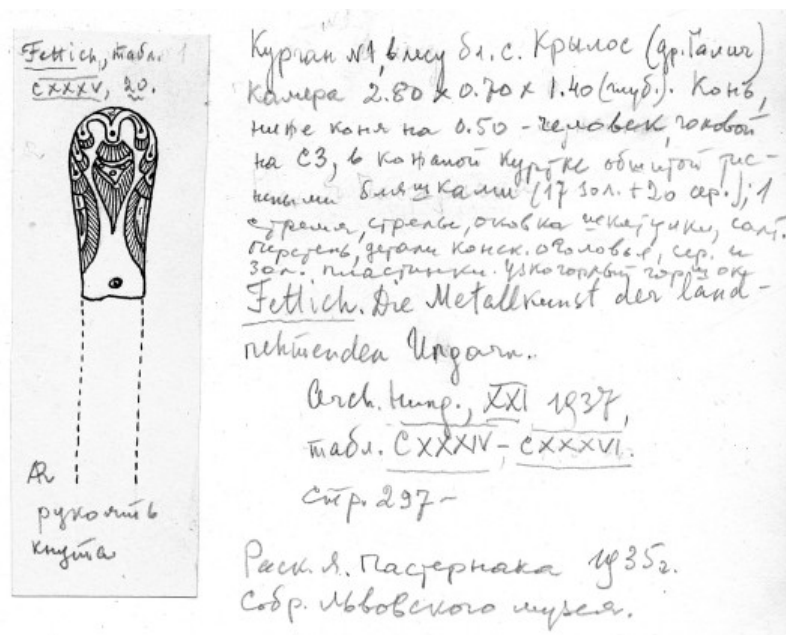 Fettich, табл. 1
CXXXV, 20.
AR
рукоять
кнута
Курган №1, в лесу бл. с. Крылос (др. Галич)
Камера 2.80 х 0.70 х 1.40 (глуб.). Конь,
ниже коня на 0.50 – человек, головой
на СЗ, в кожаной куртке обшитой тис-
неными бляшками (17 зол. + 20 сер.); 1
стремя, стрелы, оковка салт.
перстень, детали конск. оголовья, сер. и
зол. пластинки. Узкогорлый горшок
Fettich. Die Metallkunst der land-
nehmenden Ungarn.
Arch. Hung., XXI 1937,
табл. CXXXIV – CXXXVI.
Стр. 297 –
Раск. Я. Пастернака 1935г.
Собр. Львовского музея.